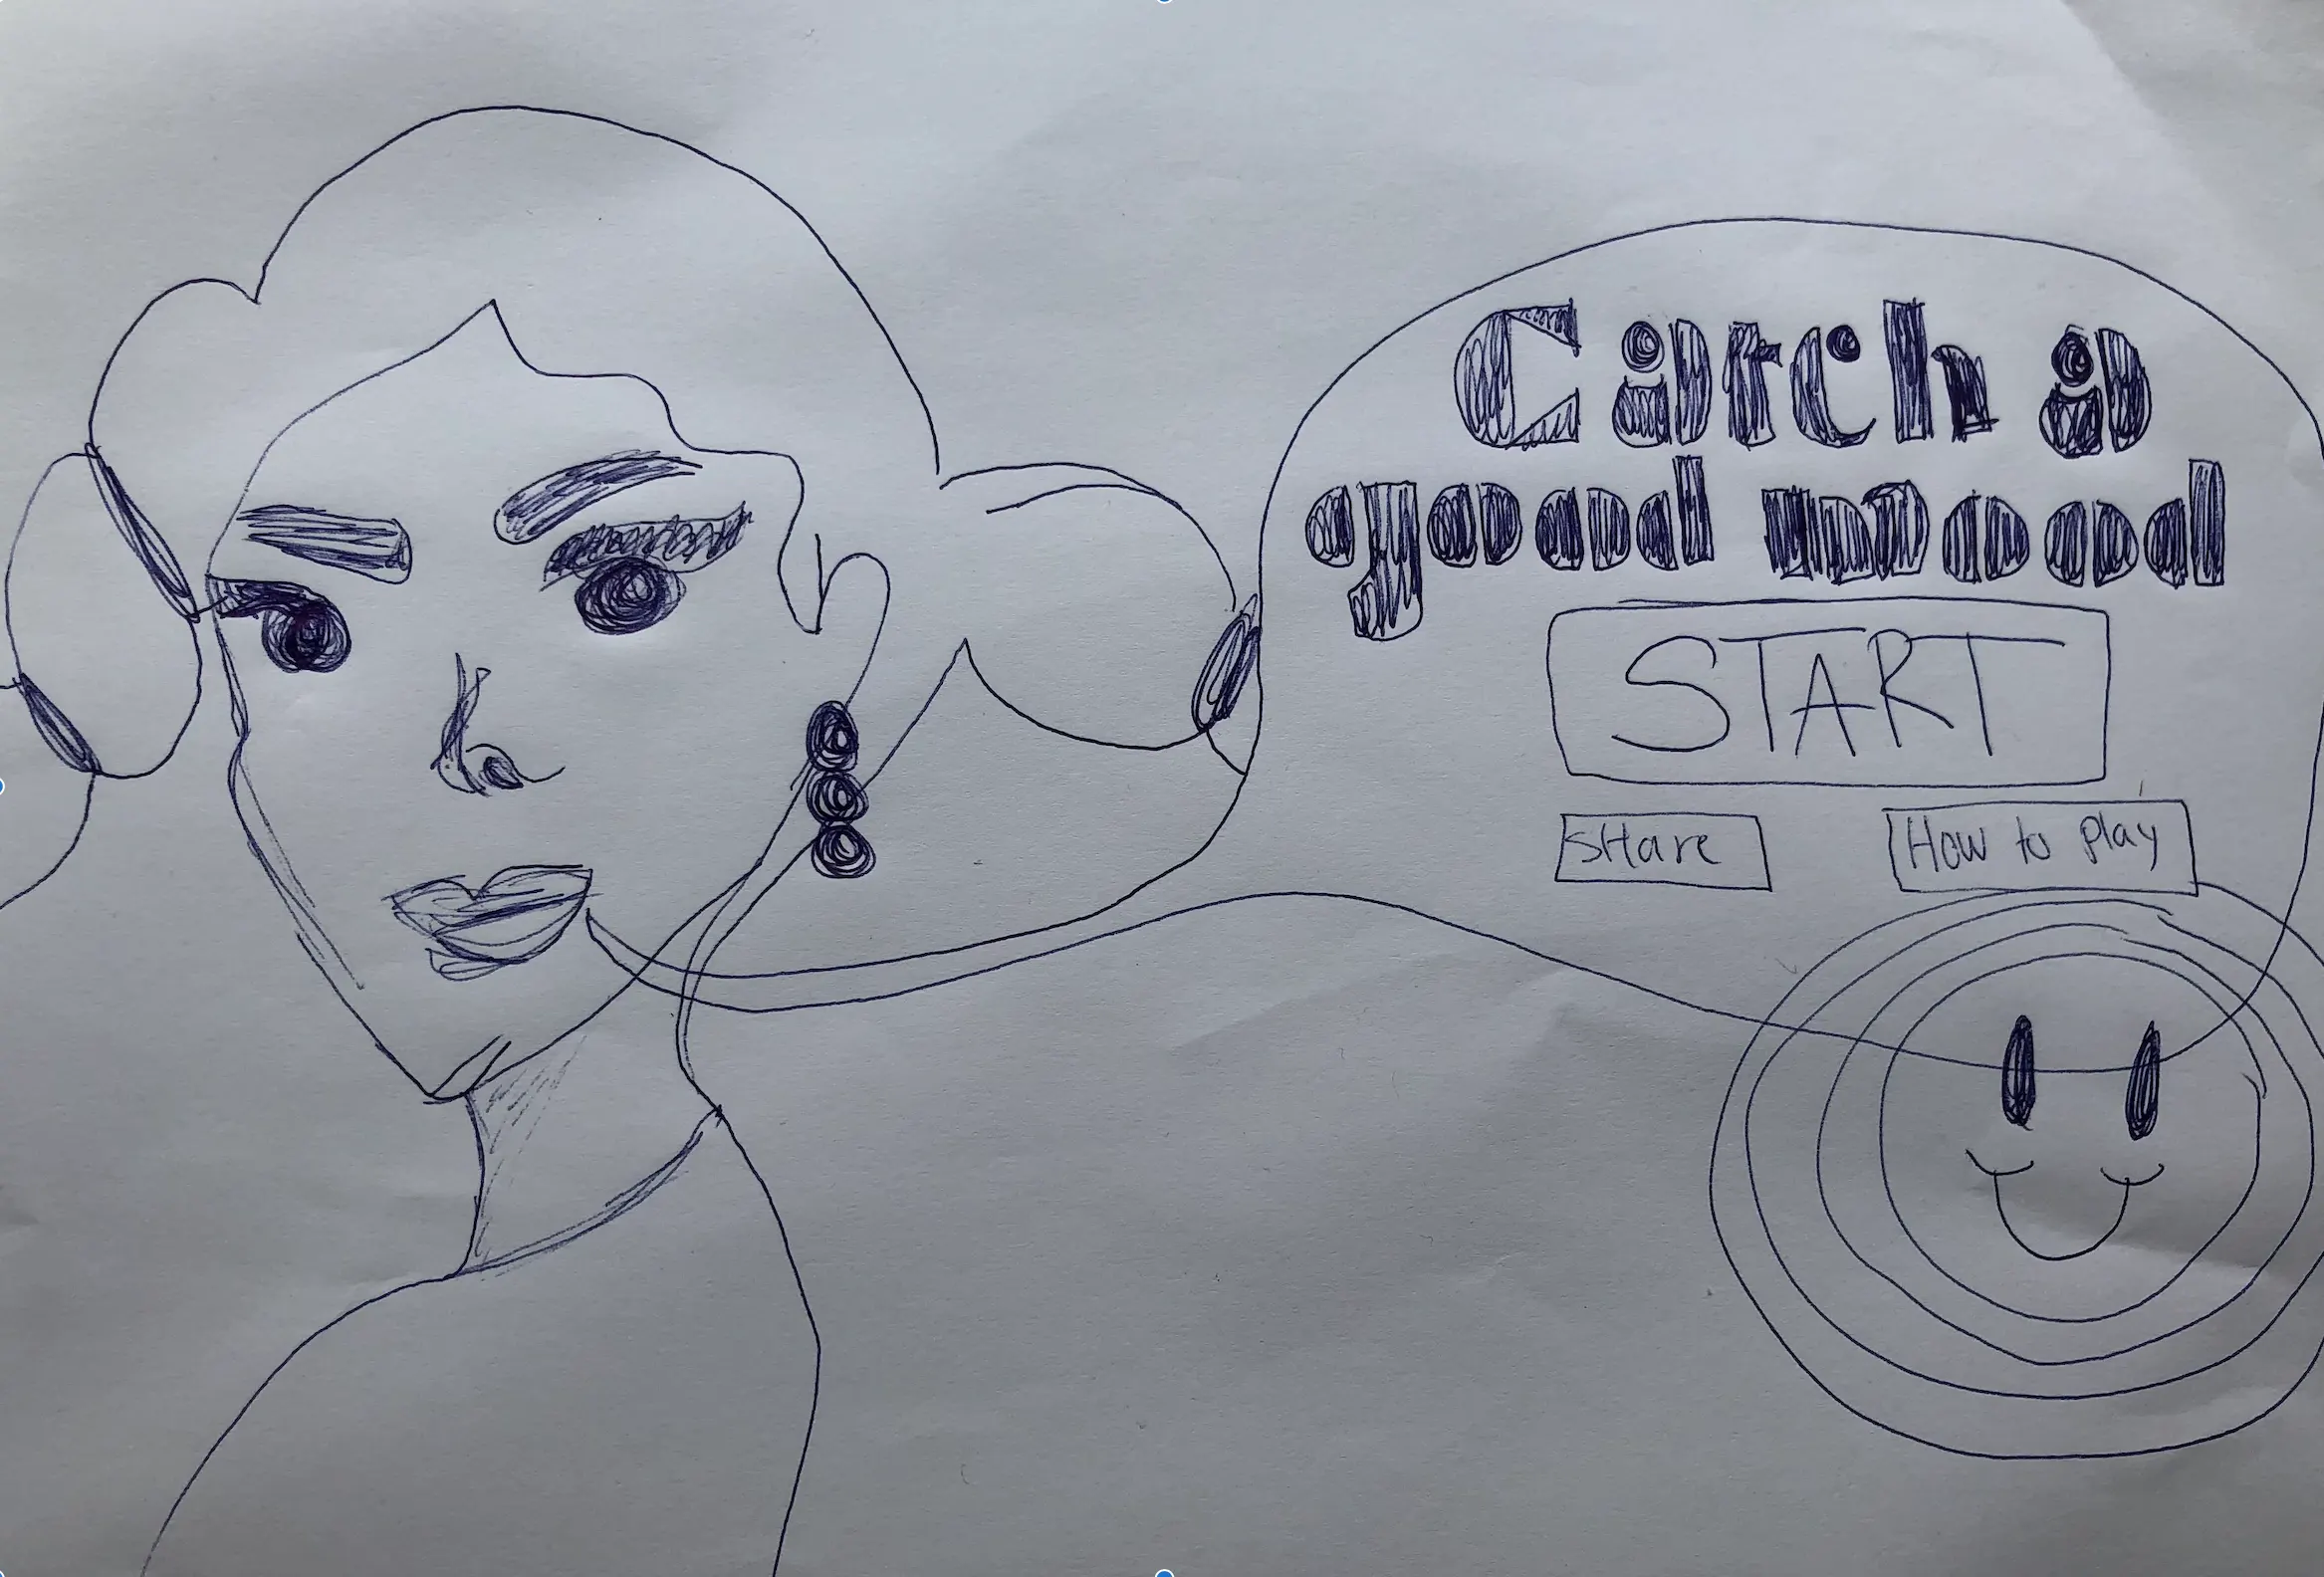 Catch a
good mood
START
SHare
How to play